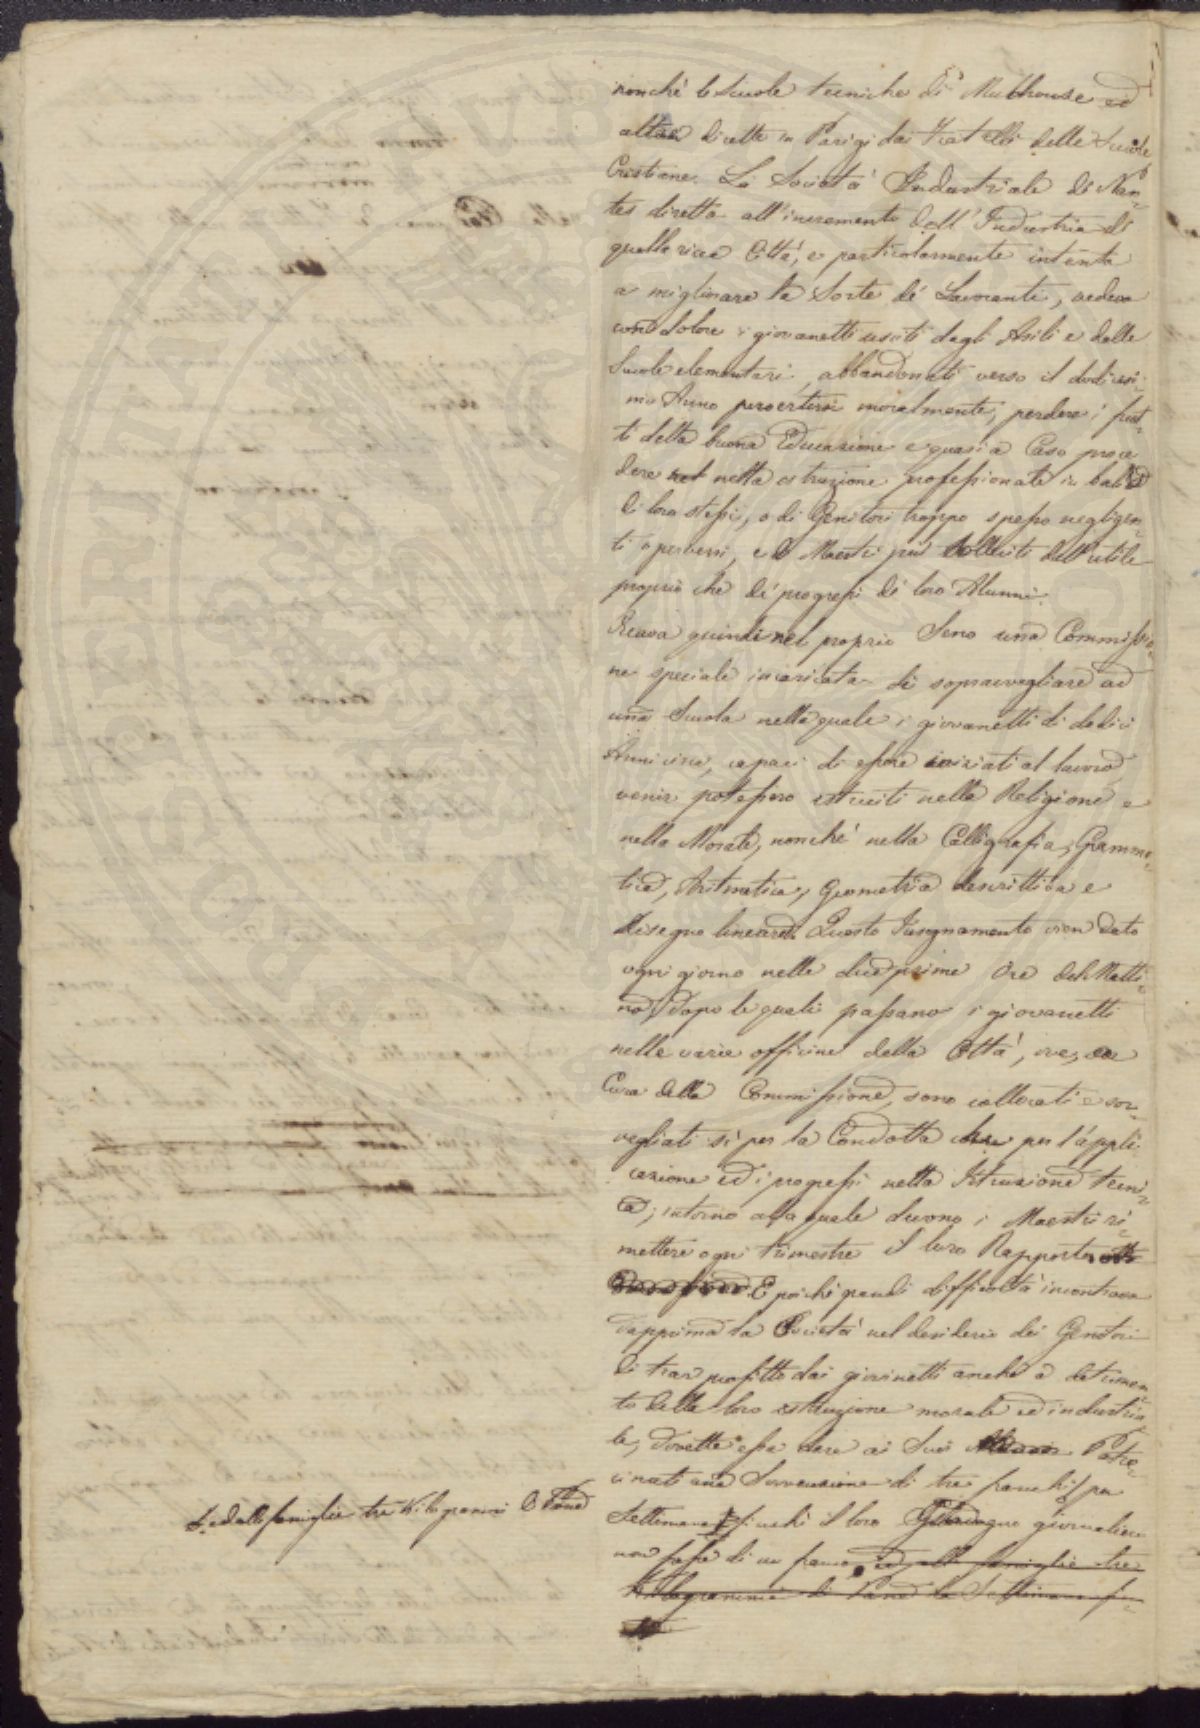 nonchè le Scuole tecniche di Mulhouse ed
altre dirette in Parigi dai Fratelli delle Scuole
Cristiane. La Società Industriale di Nan-
tes diretta all'incremento dell'Industria di
quella ricca Città, e particolarmente intenta
a migliorare la Sorte de' Lavoranti, vedeva
con dolore i giovanetti usciti dagli Asili e dalle
Scuole elementari, abbandonati verso il dodicesi-
mo Anno pervertirsi moralmente, perdere i frut-
ti della buona Educazione e quasi a Caso proce
dere nella istruzione professionale in balìa
di loro stessi, o di Genitori troppo spesso negligen-
ti o perversi, e di Maestri più solleciti dell'utile
proprio che de' progressi di loro Alunni.
Creava quindi nel proprio Seno una Commissio-
ne speciale incaricata di sopravvegliare ad
una Scuola nella quale i giovanetti di dodici
Anni circa, capaci di essere iniziati al lavoro,
venir potessero istruiti nella Religione e
nella Morale, nonchè nella Calligrafia, Gramma-
tica, Aritmetica, Geometria descrittiva e
disegno lineare. Questo Insegnamento vien dato
ogni giorno nelle due prime Ore del Matti-
no, dopo le quali passano i giovanetti
nelle varie officine della Città, ove, a
Cura della Commissione, sono collocati e sor-
vegliati sì per la Condotta che per l'appli-
cazione ed i progressi nella Istruzione tecni-
ca; intorno alla quale devono i Maestri ri-
mettere ogni trimestre il loro Rapporto
E poichè grandi difficoltà incontrava
dapprima la Società nel desiderio dei Genitori
di trar profitto dai giovinetti anche a detrimen-
to della loro istruzione morale ed industria-
le, dovette essa dare ai Suoi Patro-
cinati una Sovvenzione di tre franchi per
Settimana finchè il loro Guadagno giornaliero
non fosse di un franco, ed alle famiglie tre
Kilogrammi di Pane la Settimana fi-
ed alle famiglie tre Kilogrammi di Pane